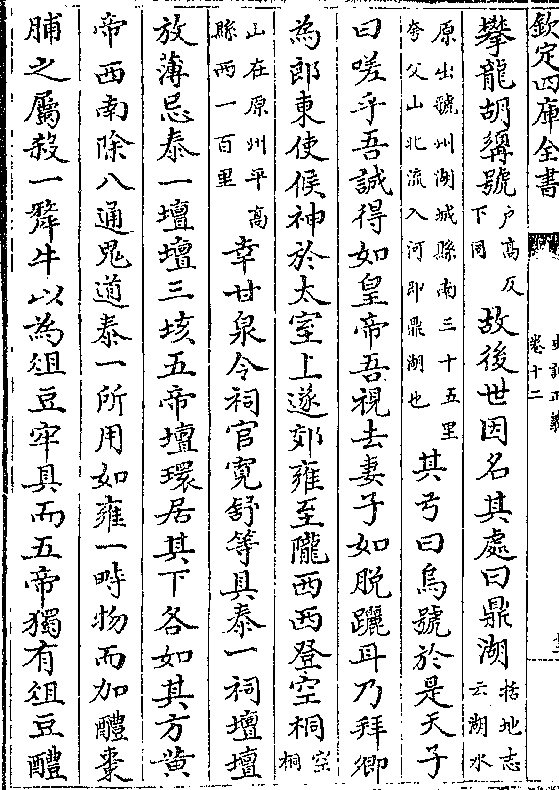 欽定四庫全書
史記正義
卷十二
攀龍胡髯號戶高反下同故後世因名其處曰鼎湖括地志云湖水
原出號州湖城縣南三十五里夸父山北流入河即鼎湖也其弓曰烏號於是天子
曰嗟乎吾誠得如皇帝吾視去妻子如脫躧耳乃拜卿
為郎東使候神於太室上遂郊雍至隴西西登空桐空桐
山在原州平高縣西一百里幸甘泉令祠官寛舒等具泰一祠壇壇
放薄忌泰一壇壇三垓五帝壇環居其下各如其方黄
帝西南除八通鬼道泰一所用如雍一畤物而加醴棗
脯之屬殺一犛牛以為俎豆牢具而五帝獨有俎豆醴